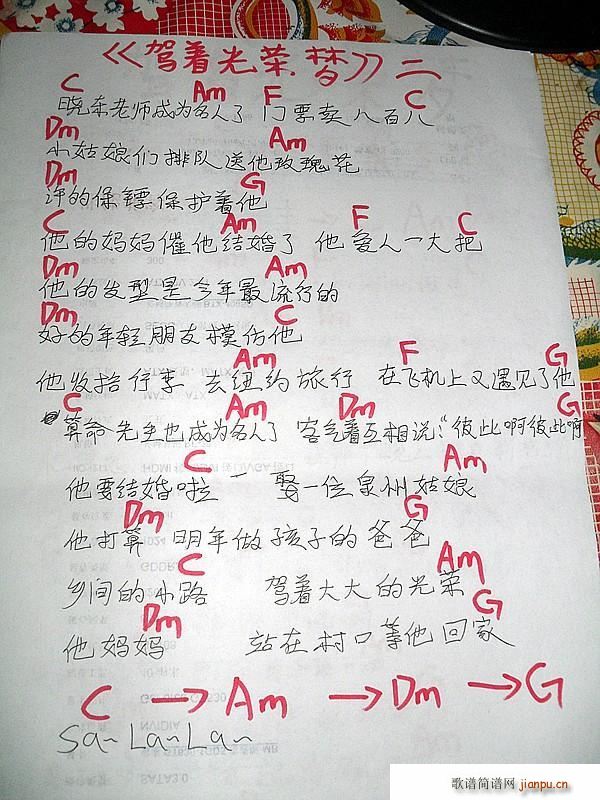 《《驾着光荣.梦》》二
C Am F C
晓东老师成为名人了 门票卖八百八
Dm Am
小姑娘们排队送他玫瑰花
Dm G
的保镖保护着他
C Am F C
他的妈妈催他结婚了 他爱人一大把
Dm Am
他的发型是今年最流行的
Dm C
好的年轻朋友模仿他
Am F G
他收拾行李 去纽约旅行 在飞机上又遇见了他
C Am Dm G
算命先生也成为名人了 客气着互相说:"彼此啊彼此啊
C Am
他要结婚啦 一 娶一位泉州姑娘
Dm G
他打算 明年做孩子的爸爸
C Am
乡间的小路 驾着大大的光荣
Dm G
他妈妈 站在村口等他回家
C → Am → Dm → G
Sa~ La~ La~
歌谱简谱网 jianpu.cn